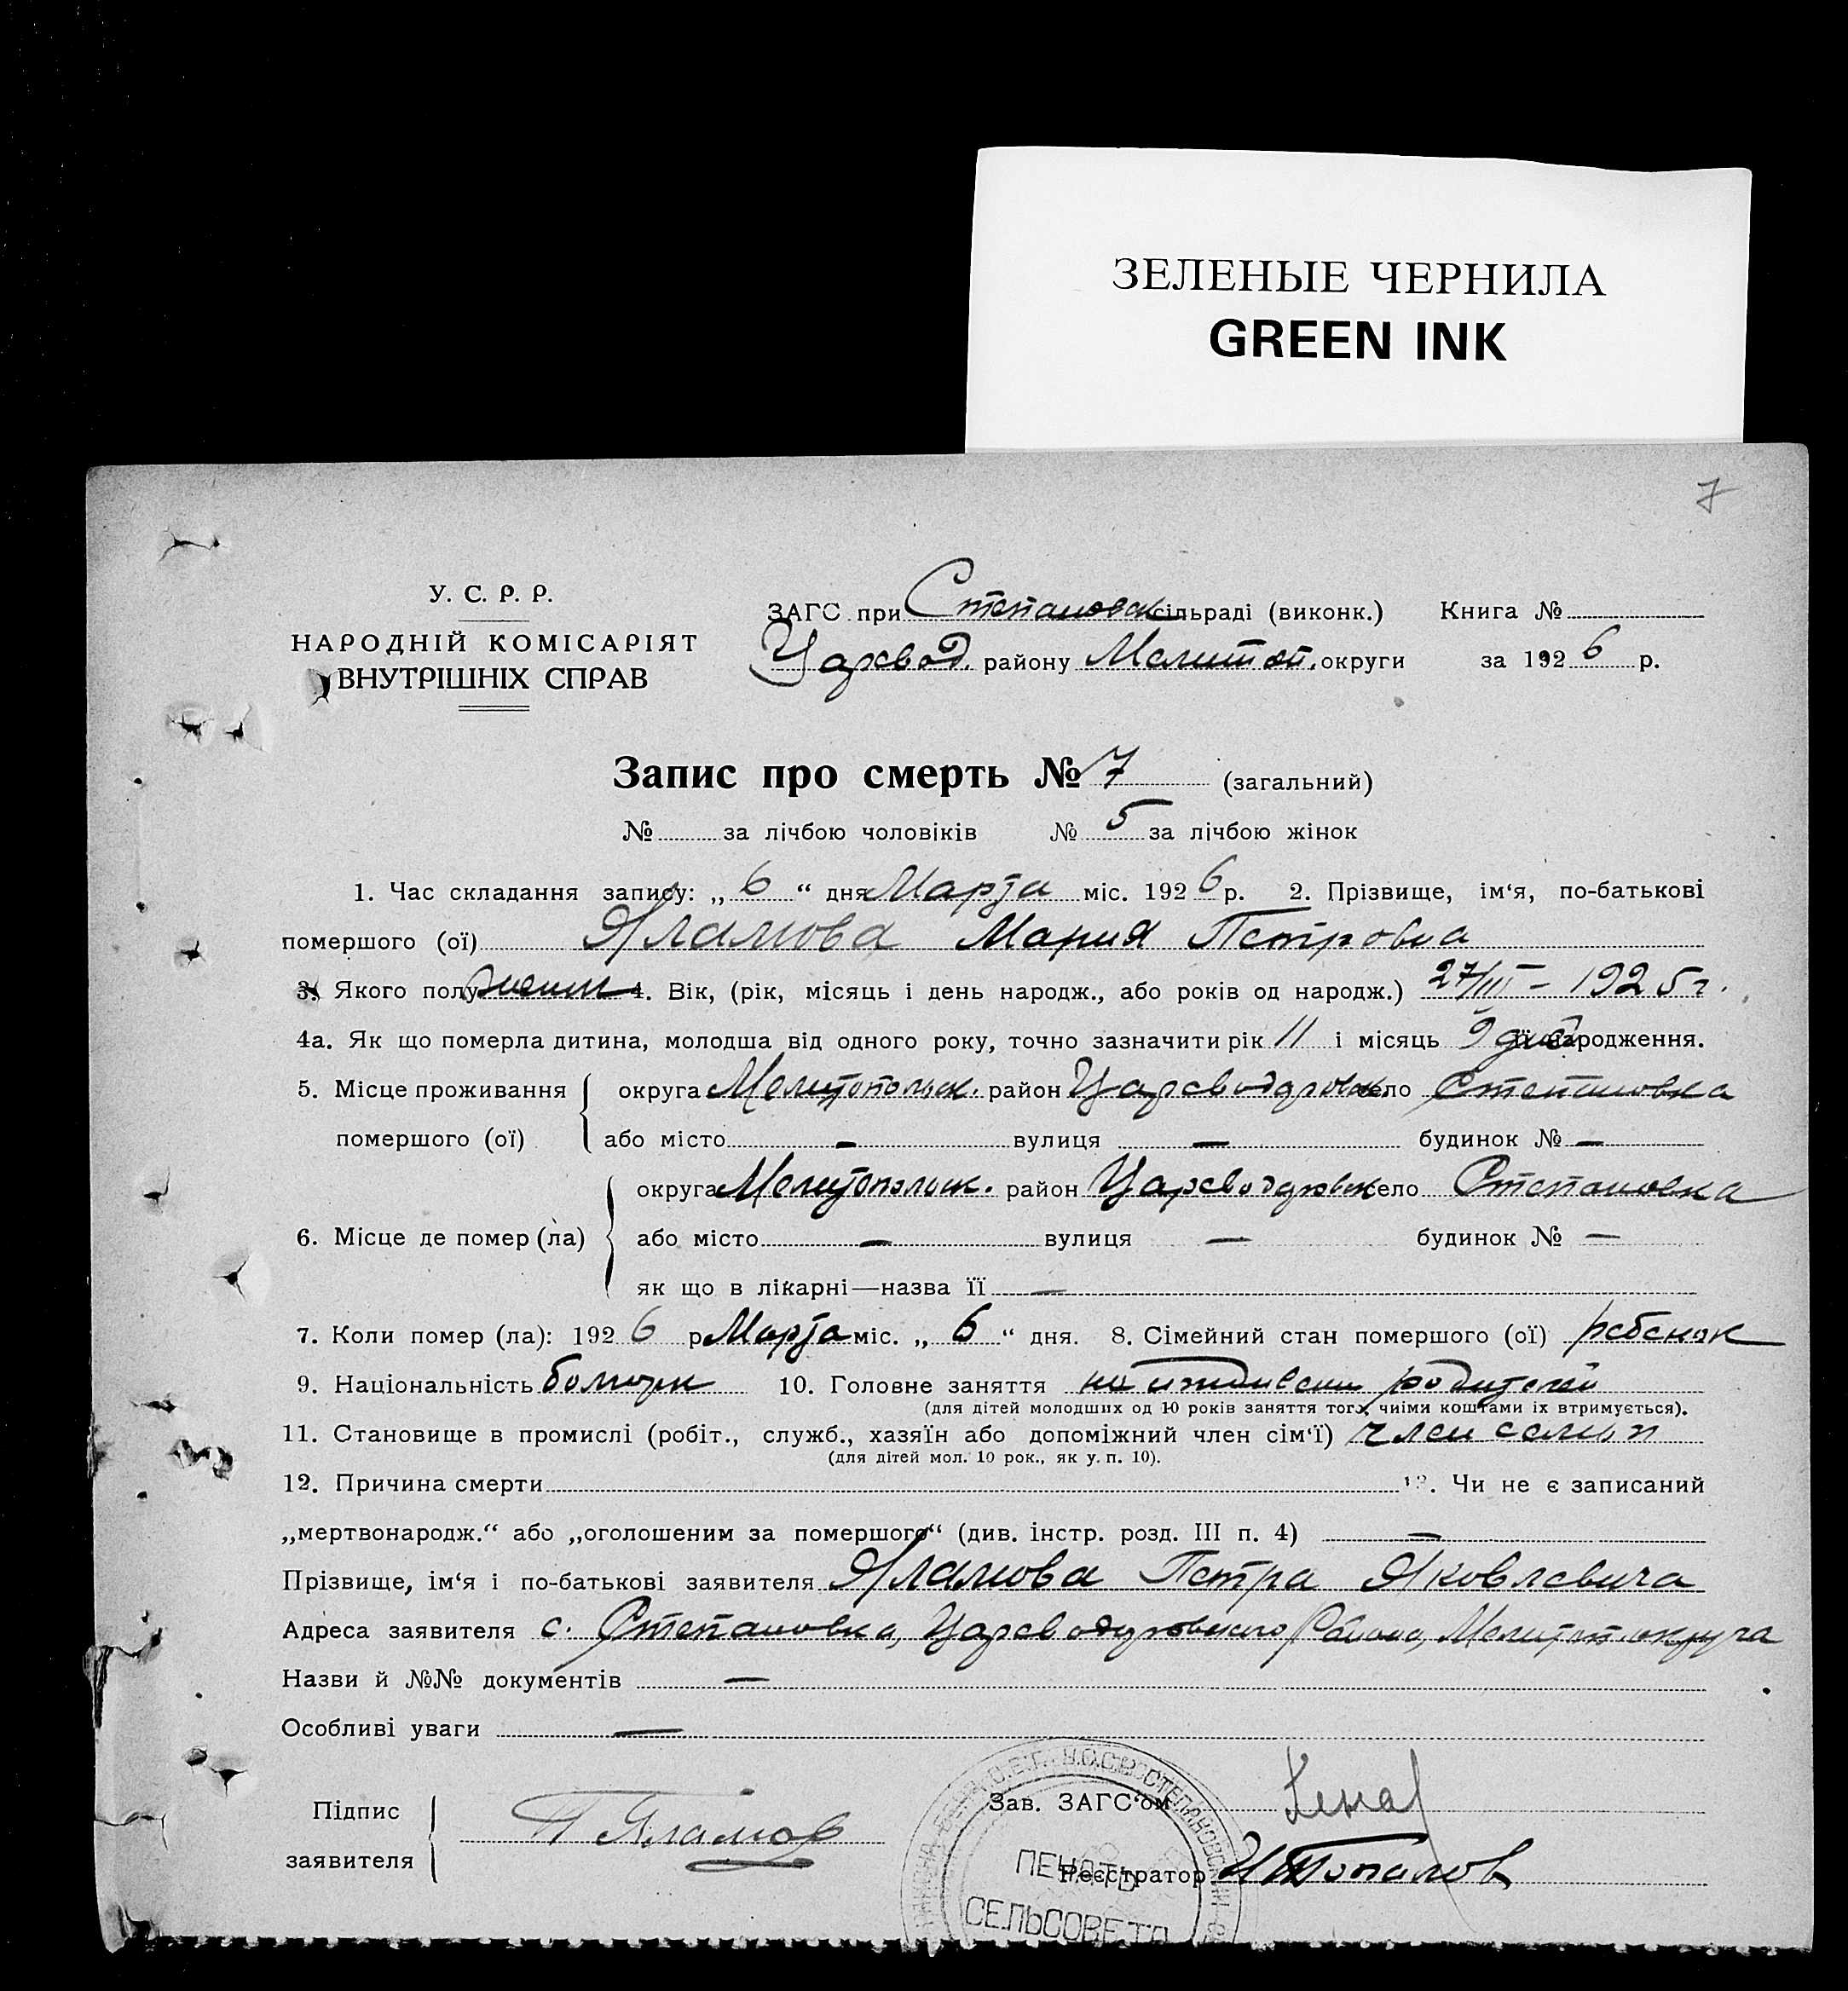 ЗЕЛЕНЫЕ ЧЕРНИЛА
GREEN INK
7
У. С. Р. Р.
НАРОДНІЙ КОМІСАРІЯТ
ВНУТРІШНІХ СПРАВ
ЗАГС при Степановск сільраді (виконк.) Книга №
Царевод. району Мелитоп. округи за 1926 р.
Запис про смерть № 7 (загальний)
№ за лічбою чоловіків № 5 за лічбою жінок
1. Час складання запису: „6“ дня Марта міс. 1926 р. 2. Прізвище, ім'я, по-батькові
помершого (ої) Яламова Мария Петровна
3. Якого полу женск 4. Вік, (рік, місяць і день народж., або років од народж.) 27/III – 1925 г.
4а. Як що померла дитина, молодша від одного року, точно зазначити рік 11 і місяць 9 дней її народження.
5. Місце проживання округа Мелитопольск. район Цареводаровск село Степановка
помершого (ої) або місто – вулиця – будинок № –
округа Мелитопольск. район Цареводаровск село Степановка
6. Місце де помер (ла) або місто – вулиця – будинок № –
як що в лікарні—назва її –
7. Коли помер (ла): 1926 р Марта міс. „6“ дня. 8. Сімейний стан помершого (ої) ребенок
9. Національність болгарк 10. Головне заняття на иждивении родителей
(для дітей молодших од 10 років заняття того, чиіми коштами іх втримується).
11. Становище в промислі (робіт., служб., хазяїн або допоміжний член сім'ї) член семьи
(для дітей мол. 10 рок., як у. п. 10).
12. Причина смерти 13. Чи не є записаний
„мертвонародж.“ або „оголошеним за помершого“ (див. інстр. розд. III п. 4) –
Прізвище, ім'я і по-батькові заявителя Яламова Петра Яковлевича
Адреса заявителя с. Степановка, Цареводаровского Района, Мелитоп. округа
Назви й №№ документів –
Особливі уваги –
Підпис
заявителя П Яламов
Зав. ЗАГС'ом
Реєстратор И Топалов
СТЕПАНОВСКИЙ
ПЕЧАТЬ
СЕЛЬСОВЕТА